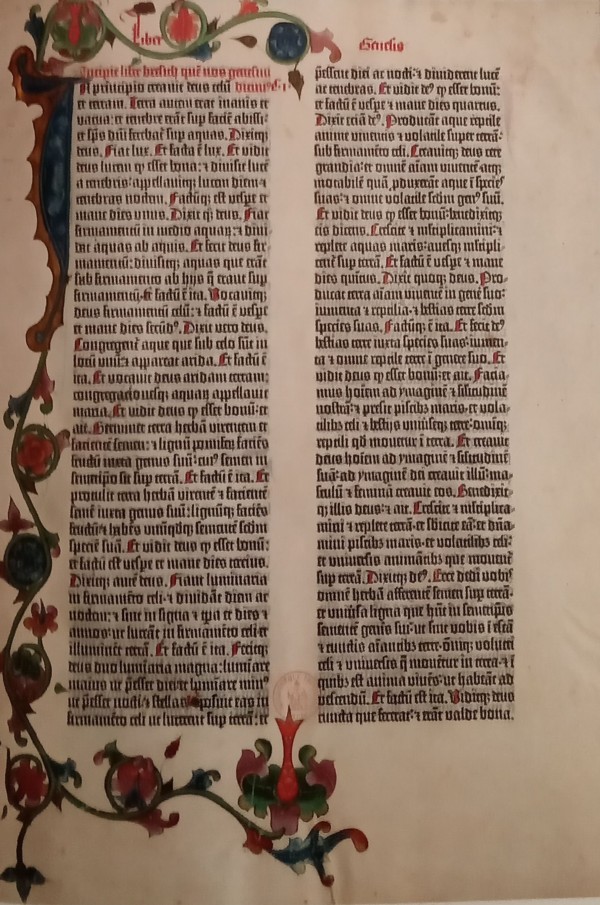 Liber Genesis
Incipit liber bresich quē nos genesim
In principio creavit deus celū dicim⁹ · I ·
et terram. Terra autem erat inanis et
vacua: et tenebre erāt sup faciē abissi:
et spūs dñi ferebat̄ sup aquas. Dixitq;
deus. Fiat lux. Et facta ē lux. Et vidit
deus lucem ꝙ esset bona: ⁊ divisit lucē
a tenebris· appellavitq; lucem diem ⁊
tenebras noctem. Factūq; est vespe et
mane dies unus. Dixit q̄ deus. Fiat
firmamentū in medio aquaꝝ: ⁊ divi-
dat aquas ab aquis. Et fecit deus fir-
mamentū: divisitq; aquas que erāt
sub firmamento ab hijs q̄ erant sup
firmamentū· et factū ē ita. Vocavitq;
deus firmamentū celū: ⁊ factū ē vespe
et mane dies secūd⁹. Dixit vero deus.
Congregent̄ aque que sub celo sūt in
locū unū: ⁊ appareat arida. Et factū ē
ita. Et vocavit deus aridam terram:
congregacionesq; aquaꝝ appellavit
maria. Et vidit deus ꝙ esset bonū· et
ait. Germinet terra herbā virentem et
facientē semen: ⁊ lignū pomifeꝝ faciēs
fructū iuxta genus suū· cui⁹ semen in
semetip̄o sit sup terrā. Et factū ē ita. Et
protulit terra herbā virentē ⁊ facientē
semē iuxta genus suū: lignūq; faciēs
fructū ⁊ habēs unūqdq; sementē scdm
speciē suā. Et vidit deus ꝙ esset bonū:
et factū est vespe et mane dies tercius.
Dixitq; autē deus. Fiant luminaria
in firmamēto celi· ⁊ dividāt diem ac
noctem: ⁊ sint in signa ⁊ tp̄a et dies ⁊
annos· ut luceāt in firmamēto celi et
illuminēt terrā. Et factū ē ita. Fecitq;
deus duo luminaria magna: luminare
maius ut p̄esset diei· et luminare min⁹
ut p̄esset nocti· ⁊ stellas· ⁊ posuit eas in
firmamēto celi ut lucerent sup terrā: et
p̄essent diei ac nocti: ⁊ dividerent lucē
ac tenebras. Et vidit de⁹ ꝙ esset bonū:
et factū ē vespe ⁊ mane dies quartus.
Dixit eciā de⁹. Producant aque reptile
anime viventis ⁊ volatile super terrā:
sub firmamēto celi. Creavitq; deus cete
grandia· et omnē aīam viventē atq;
motabilē quā pduxerāt aque ī species
suas: ⁊ omne volatile scdm gen⁹ suū.
Et vidit deus ꝙ esset bonū: benedixitq;
eis dicens. Crescite ⁊ multiplicamini· ⁊
replete aquas maris· avesq; multipli-
cent̄ sup terrā. Et factū ē vespe ⁊ mane
dies quintus. Dixit quoq; deus. Pro-
ducat terra aīam viventē in genē suo:
iumenta ⁊ reptilia· ⁊ bestias terre scdm
species suas. Factūq; ē ita. Et fecit de⁹
bestias terre iuxta species suas: iumen-
ta ⁊ omne reptile terre ī genere suo. Et
vidit deus ꝙ esset bonū: et ait. Facia-
mus hoīem ad ymaginē ⁊ silitudinē
nostrā· ⁊ presit piscib; maris· et vola-
tilib; celi ⁊ bestijs universeq; terre: omniq;
reptili qd movetur ī terra. Et creavit
deus hoīem ad ymaginē ⁊ silitudinē
suā: ad ymaginē dei creavit illū: ma-
sculū ⁊ feminā creavit eos. Benedixit-
q; illis deus· ⁊ ait. Crescite ⁊ multiplica-
mini ⁊ replete terrā· et subicite eā: et dñia-
mini piscib; maris· et volatilib; celi:
et universis animātib; que moventᷣ
sup terrā. Dixitq; de⁹. Ecce dedi vobis
omnē herbā afferentē semen sup terrā·
et univsa ligna que hñt in semetip̄is
sementē genis sui: ut sint vobis ī escā
⁊ cunctis aīantib; terre· oīniq; volucri
celi ⁊ universis q̄ moventur in terra· ⁊ ī
quib; est anima vivēs: ut habeāt ad
vescendū. Et factū est ita. Viditq; deus
cuncta que fecerat: ⁊ erāt valde bona.